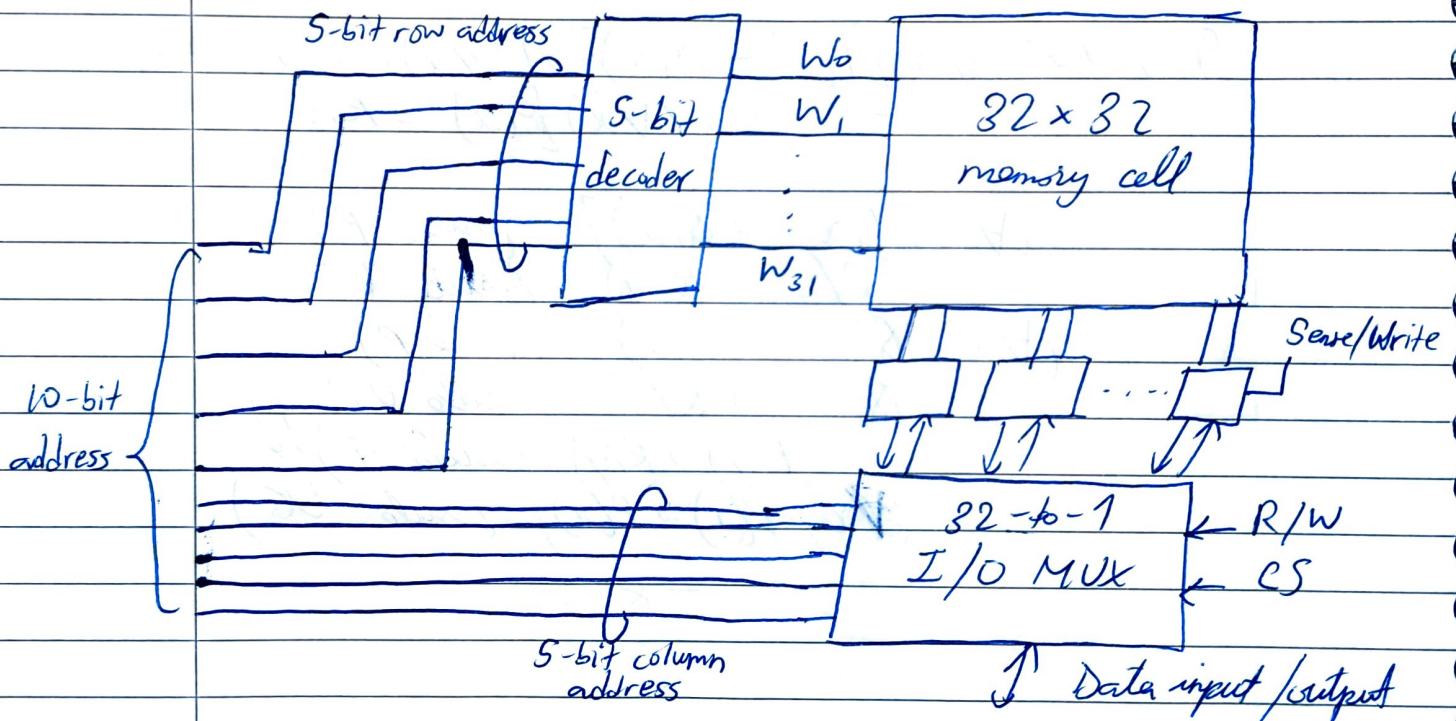 5-bit row address
5-bit
decoder
W0
W1
W31
32 x 32
memory cell
Sense/Write
10-bit
address
32-to-1
I/O MUX
R/W
CS
5-bit column
address
Data input/output